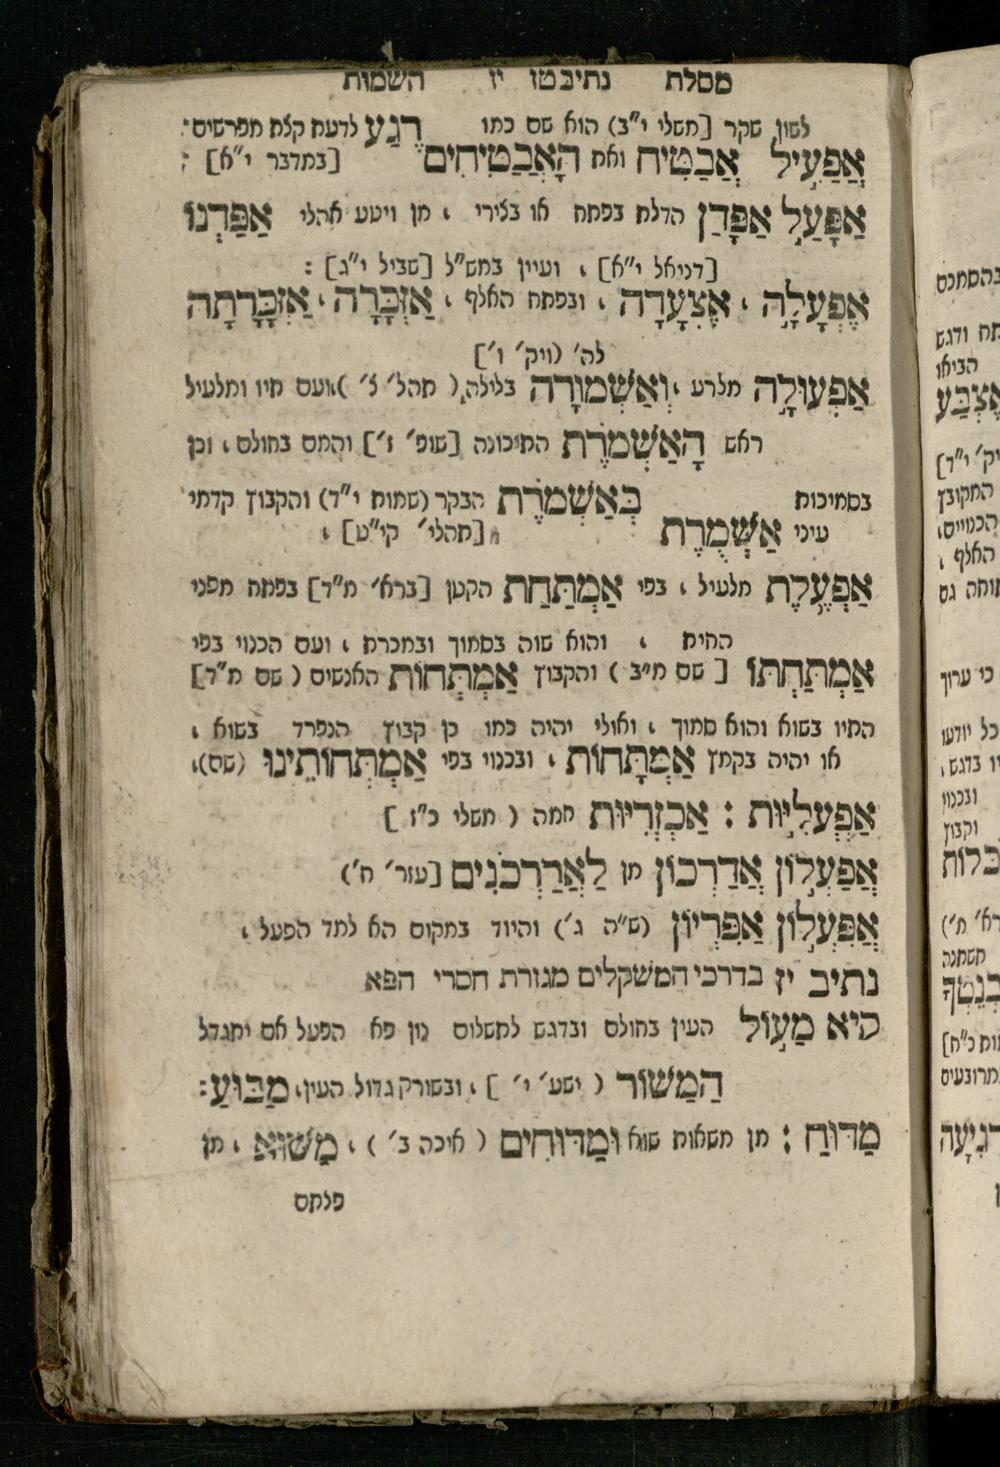 מסלת נתיבטו יז השמות
לשון שקר [משלי י"ב) הוא שם כמו רֶגַע לדעת קלת מפרשים:
אֲפַעִיל אֲבַטִּיח ואת הָאֲבַטִּיחִים [במדבר י"א] :
אַפָּעַל אַפָּדַן הדלת בפתח או בצירי ، מן ויטע אהלי אַפַּדְנוֹ
[דניאל י"א] ، ועיין במש"ל [שביל י"ג] :
אֶפְעָלָה ، אֶצְעָדָה ، ובפתח האלף ، אַזְכָּרָה ، אַזְכָּרָתָה
לה' (ויק' ו']
אַפְעוּלָה מלרע ، וְאַשְׁמוּרָה בלילה, ( תהל' צ' )، ועם תיו ומלעיל
ראש הָאַשְׁמֹרֶת התיכונה [שופ' ז'] והמם בחולם ، וכן
בסמיכות בְּאַשְׁמֹרֶת הבקר (שמות י"ד) והקבוץ קדמי
עיני אַשְׁמֻרֶת [תהלי' קי"ט] ،
אַפְעֶלֶת מלעיל ، בפי אַמְתַּחַת הקטן [ברא' מ"ד] בפתח מפני
החית ، והוא שוה בסמוך ובמכרת ، ועם הכנוי בפי
אַמְתַּחְתּוֹ [ שם מ"ב ) והקבוץ אַמְתְּחוֹת האנשים ( שם מ"ד]
התיו בשוא והוא סמוך ، ואולי יהיה כמו כן קבוץ הנפרד בשוא ،
או יהיה בקמץ אַמְתָּחוֹת ، ובכנוי בפי אַמְתְּחוֹתֵינוּ (שם)،
אַפְעְלִיּוּת : אַכְזְרִיּוּת חמה ( משלי כ"ז ]
אֲפַעְלוֹן אֲדַרְכוֹן מן לַאֲדַרְכֹנִים [עזר' ח')
אֲפִּעְלוֹן אַפִּרְיוֹן (ש"ה ג') והיוד במקום הא למד הפעל ،
נתיב יז בדרכי המשקלים מגזרת חסרי הפא
כיא מַעוֹל העין בחולם ובדגש לתשלום נון פא הפעל אם יתגדל
הַמַּשּׂוֹר ( ישע' י' ] ، ובשורק גדול העין، מַבּוּעַ:
מַדּוּחַ : מן משאות שוא וּמַדּוּחִים ( איכה ב' ) ، מַשּׂוּא ، מן
פלתם
בהסמכם
הביאו
אֶצְבַּע
הכנויים
האלף ،
כי ערוך
ובכנוי
וקבוץ